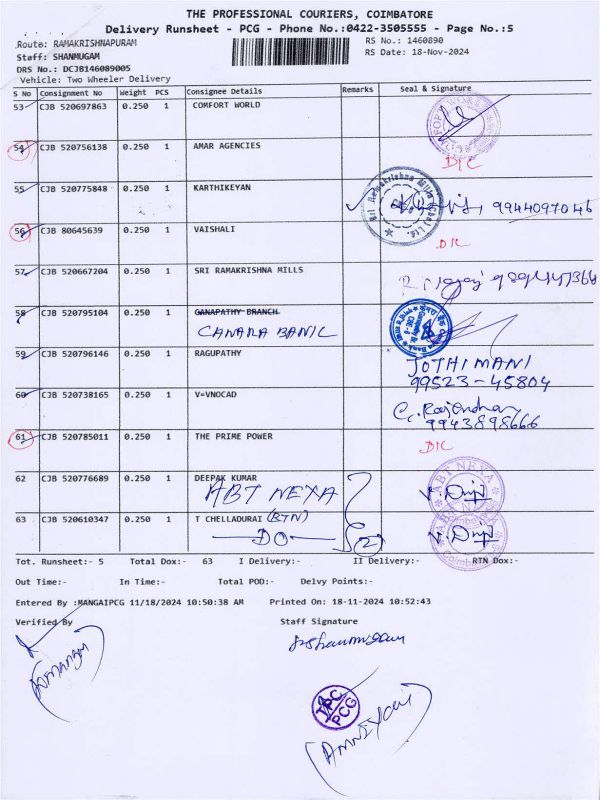 THE PROFESSIONAL COURIERS, COIMBATORE
Delivery Runsheet - PCG - Phone No.:0422-3505555 - Page No.:5
Route: RAMAKRISHNAPURAM
RS No.: 1460890
Staff: SHANMUGAM
RS Date: 18-Nov-2024
DRS No.: DCJB146089005
Vehicle: Two Wheeler Delivery
S No Consignment No Weight PCS Consignee Details Remarks Seal & Signature
53 CJB 520697863 0.250 1 COMFORT WORLD
54 CJB 520756138 0.250 1 AMAR AGENCIES
55 CJB 520775848 0.250 1 KARTHIKEYAN 9944097046
56 CJB 80645639 0.250 1 VAISHALI
57 CJB 520667204 0.250 1 SRI RAMAKRISHNA MILLS
58 CJB 520795104 0.250 1 GANAPATHY BRANCH
CANARA BANK
59 CJB 520796146 0.250 1 RAGUPATHY JOTHIMANI
99523-45804
60 CJB 520738165 0.250 1 V=VNOCAD
9943898666
61 CJB 520785011 0.250 1 THE PRIME POWER
62 CJB 520776689 0.250 1 DEEPAK KUMAR
ABT NEXA
ABT NEXA
63 CJB 520610347 0.250 1 T CHELLADURAI (RTN)
DO 2
Tot. Runsheet:- 5 Total Dox:- 63 I Delivery:- II Delivery:- RTN Dox:-
Out Time:- In Time:- Total POD:- Delvy Points:-
Entered By :MANGAIPCG 11/18/2024 10:50:38 AM Printed On: 18-11-2024 10:52:43
Verified By Staff Signature
TPC
PCG